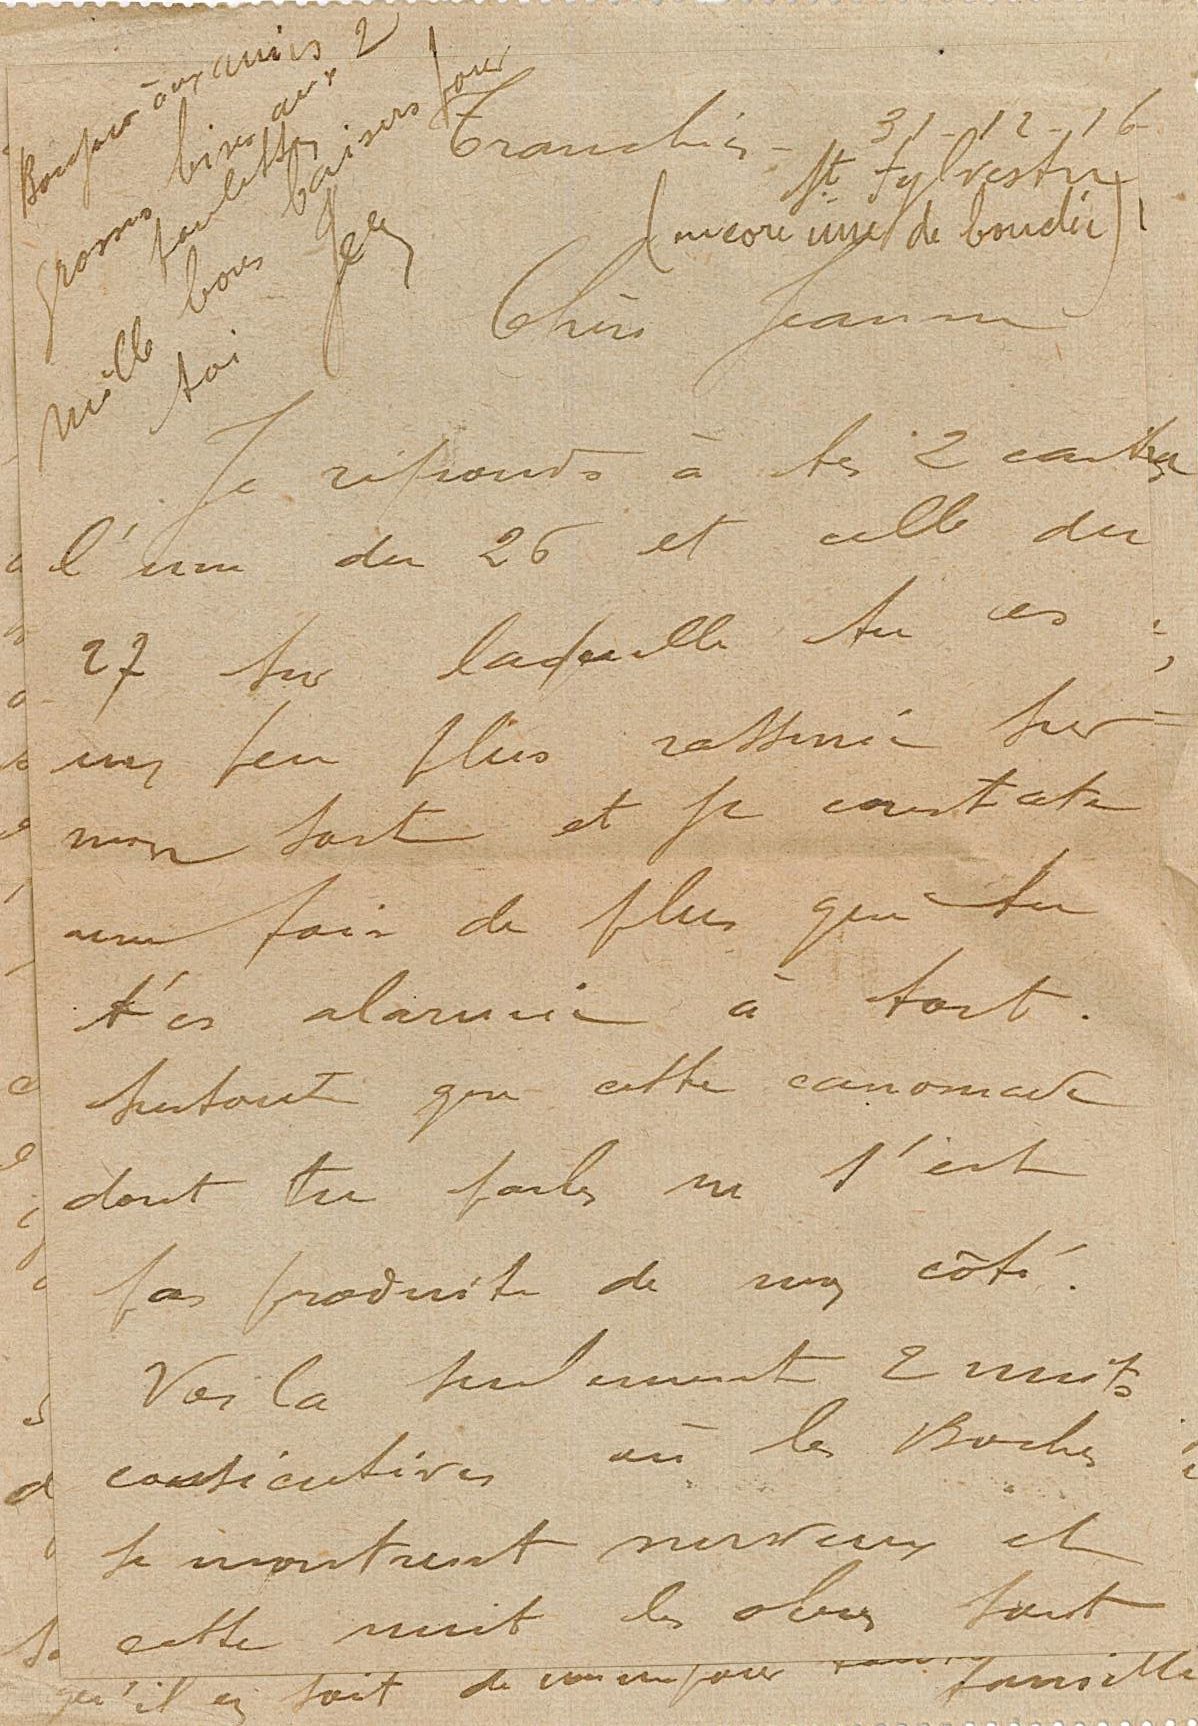 Bonjour aux amis
grosses bises aux 2
poulettes
mille bons baisers pour
toi
Tranchées - 31-12-16
St Sylvestre
(encore une de bouclée)!
Chère Jeanne
Je réponds à tes 2 cartes
l'une du 26 et celle du
27 sur laquelle tu es
un peu plus rassurée sur
mon sort et je constate
une fois de plus que tu
t'es alarmée à tort.
surtout que cette canonnade
dont tu parles ne s'est
pas produite de mon côté.
Voila seulement 2 nuits
consécutives où les Boches
se montrent nerveux et
cette nuit les obus sont
qu'il en soit de même pour famille